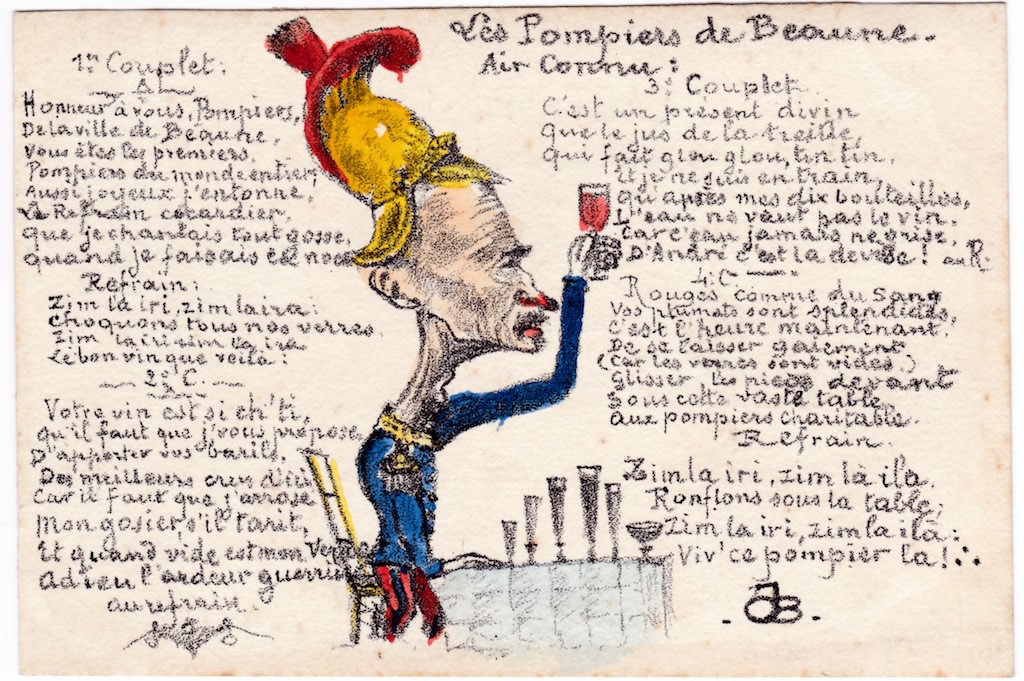 Les Pompiers de Beaune.
Air Connu:
1er Couplet:
Honneur à vous, Pompiers,
De la ville de Beaune,
Vous êtes les premiers,
Pompiers du monde entier,
Aussi joyeux j'entonne,
Le Refrain cocardier,
que je chantais tout gosse,
quand je faisais la noce
Refrain:
Zim la iri, zim laira:
Choquons tous nos verres.
Zim la iri zim la ira
Le bon vin que voilà:
2e C.
Votre vin est si ch'ti,
qu'il faut que j'vous propose
D'apporter vos barils,
Des meilleurs crus d'ici
Car il faut que j'arrose
Mon gosier s'il tarit,
Et quand vide est mon Verre
adieu l'ardeur guerrière
au refrain.
3e Couplet.
C'est un présent divin
Que le jus de la treille,
qui fait glou glou, tin tin,
Et je ne suis en train,
qu'après mes dix bouteilles,
L'eau ne vaut pas le vin.
Car c'eau jamais ne grise,
D'André c'est la devise! au R.
4e C
Rouges comme du Sang
Vos plumets sont splendides,
C'est l'heure maintenant.
De se laisser gaiement
(Car les verres sont vides.)
Glisser, les pieds devant
Sous cette vaste table
Aux pompiers charitable.
Refrain.
Zim la iri, zim la ila.
Ronflons sous la table;
Zim la iri, zim la ila:
Viv' ce pompier la!